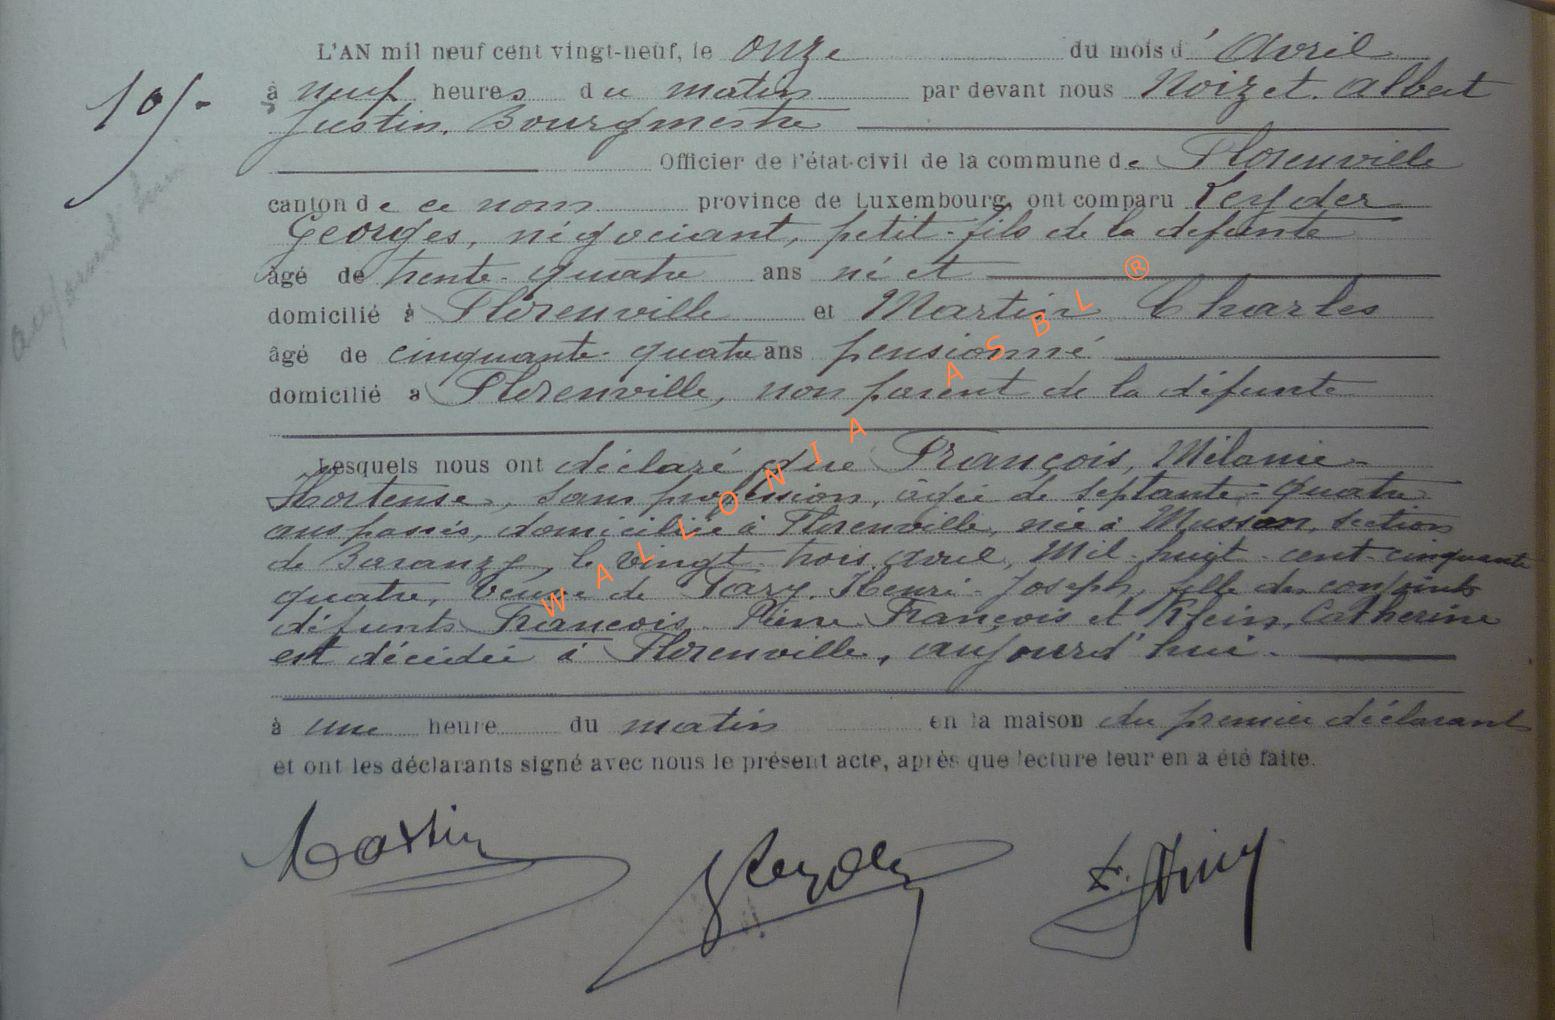 L'AN mil neuf cent vingt-neuf, le onze du mois d'Avril
10/-
à neuf heures du matin par devant nous Noizet. Albert
Justin. Bourgmestre
Officier de l'état-civil de la commune de Florenville
canton de ce nom province de Luxembourg, ont comparu Reyder
Georges, négociant, petit-fils de la défunte
âgé de trente-quatre ans né et
domicilié à Florenville et Martin Charles
âgé de cinquante-quatre ans pensionné
domicilié à Florenville, non parent de la défunte
Lesquels nous ont déclaré que François, Mélanie-
Hortense, sans profession, âgée de septante-quatre
ans passés, domiciliée à Florenville, née à Musson, section
de Baranzy, le vingt-trois avril, Mil-huit-cent-cinquante
quatre, Veuve de Henri-Joseph, fille des conjoints
défunts François. Pierre François et Klein, Catherine
est décédée à Florenville, aujourd'hui.
à une heure du matin en la maison du premier déclarant
et ont les déclarants signé avec nous le présent acte, après que lecture leur en a été faite.
Martin
WALLONIA ASBL ®